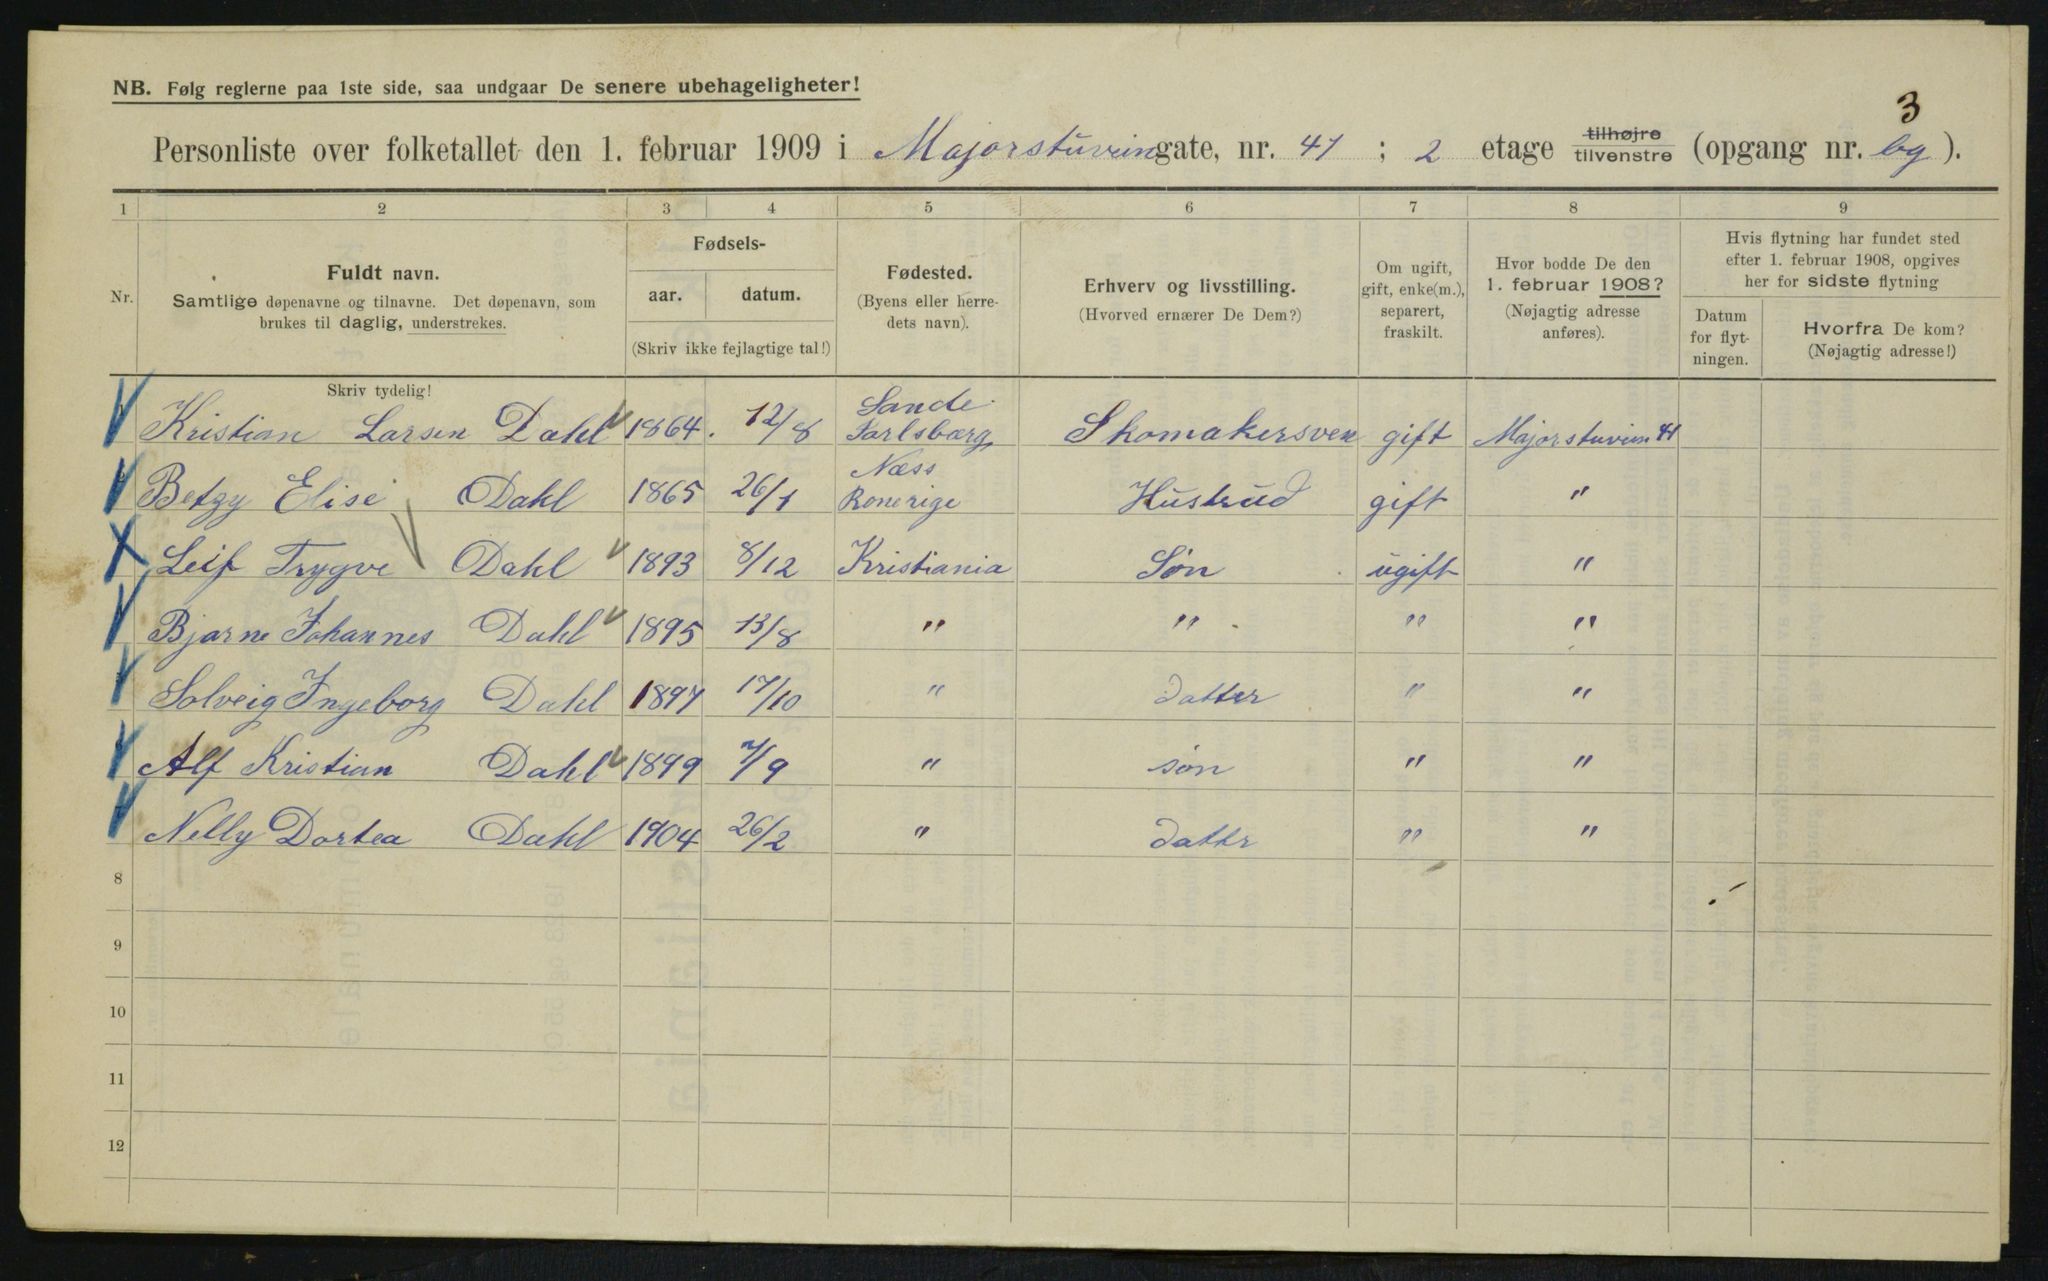 NB. Følg reglerne paa 1ste side, saa undgaar De senere ubehageligheter!
3
Personliste over folketallet den 1. februar 1909 i Majorstuveien gate, nr. 41 ; 2 etage tilhøjre tilvenstre (opgang nr. bg ).
1 2 3 4 5 6 7 8 9
Nr.
Fuldt navn.
Samtlige døpenavne og tilnavne. Det døpenavn, som
brukes til daglig, understrekes.
Fødsels-
aar. datum.
(Skriv ikke fejlagtige tal!)
Fødested.
(Byens eller herre-
dets navn).
Erhverv og livsstilling.
(Hvorved ernærer De Dem?)
Om ugift,
gift, enke(m.),
separert,
fraskilt.
Hvor bodde De den
1. februar 1908?
(Nøjagtig adresse
anføres).
Hvis flytning har fundet sted
efter 1. februar 1908, opgives
her for sidste flytning
Datum
for flyt-
ningen.
Hvorfra De kom?
(Nøjagtig adresse!)
Skriv tydelig!
Kristian Larsen Dahl 1864. 12/8 Sande Jarlsbærg Skomakersven gift Majorstuveien 41
Betzy Elise Dahl 1865 26/1 Næss Romerige Hustrud gift "
Leif Trygve Dahl 1893 8/12 Kristiania Søn ugift "
Bjarne Johannes Dahl 1895 13/8 " " " "
Solveig Ingeborg Dahl 1897 17/10 " Datter " "
Alf Kristian Dahl 1899 7/9 " søn " "
Nelly Dortea Dahl 1904 26/2 " Datter " "
8
9
10
11
12